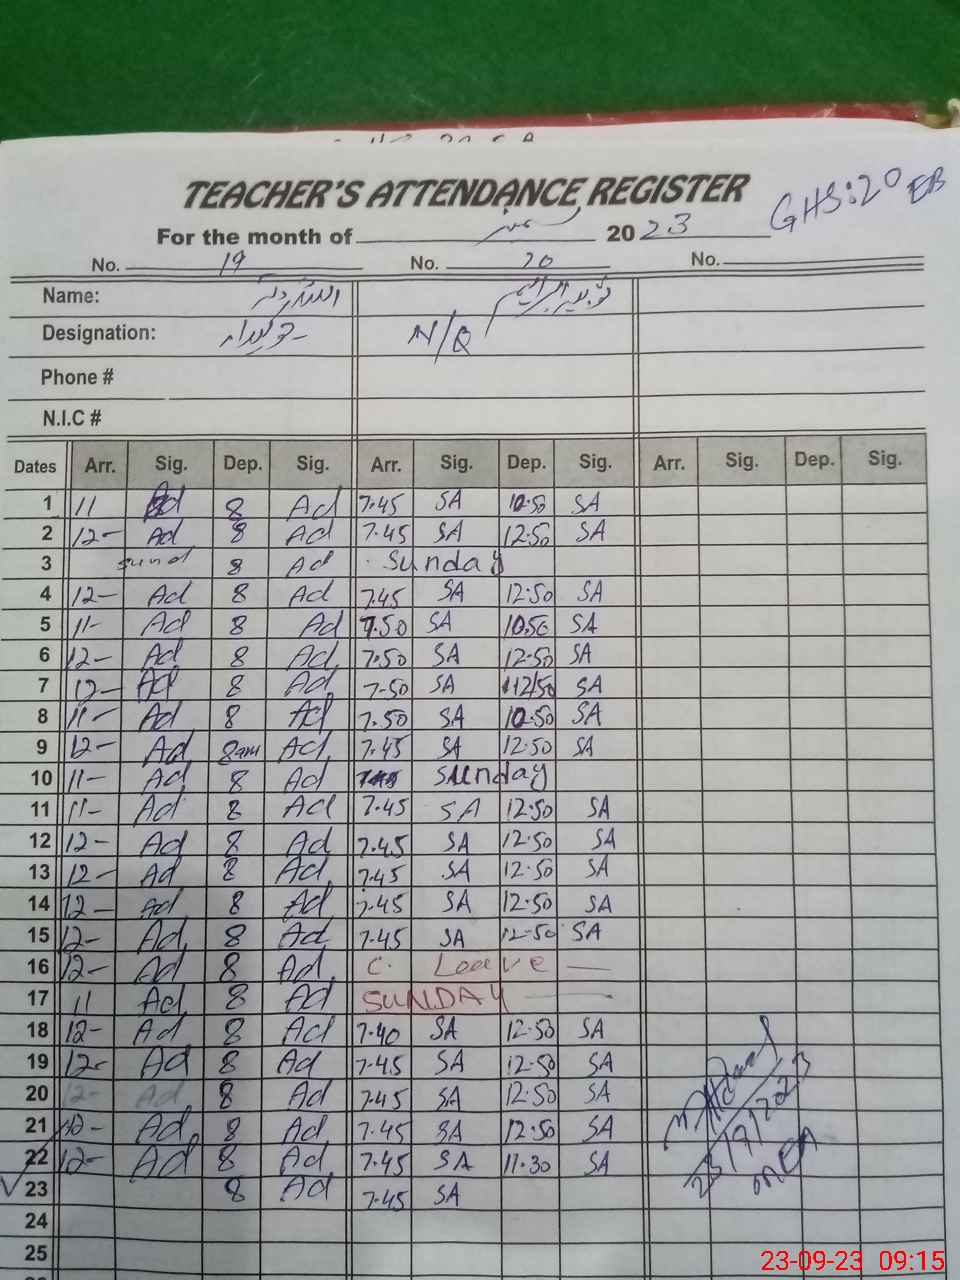 TEACHER'S ATTENDANCE REGISTER
GHS:20 EB
For the month of ستمبر 2023
No. 19 No. 20 No.
Name:
Designation: چوکیدار N/Q
Phone #
N.I.C #
Dates Arr. Sig. Dep. Sig. Arr. Sig. Dep. Sig. Arr. Sig. Dep. Sig.
1 11 Ad 8 Ad 7.45 SA 10.50 SA
2 12- Ad 8 Ad 7.45 SA 12.50 SA
3 sund 8 Ad Sunday
4 12- Ad 8 Ad 7.45 SA 12.50 SA
5 11- Ad 8 Ad 7.50 SA 10.50 SA
6 12- Ad 8 Ad 7.50 SA 12.50 SA
7 12- Ad 8 Ad 7.50 SA 12/50 SA
8 11- Ad 8 Ad 7.50 SA 10.50 SA
9 12- Ad 8am Ad 7.45 SA 12.50 SA
10 11- Ad 8 Ad Sunday
11 11- Ad 8 Ad 7.45 SA 12.50 SA
12 12- Ad 8 Ad 7.45 SA 12.50 SA
13 12- Ad 8 Ad 7.45 SA 12.50 SA
14 12- Ad 8 Ad 7.45 SA 12.50 SA
15 12- Ad 8 Ad 7.45 SA 12.50 SA
16 12- Ad 8 Ad C. Leave
17 11 Ad 8 Ad SUNDAY
18 12- Ad 8 Ad 7.40 SA 12.50 SA
19 12- Ad 8 Ad 7.45 SA 12.50 SA
20 12- Ad 8 Ad 7.45 SA 12.50 SA
21 Ad 8 Ad 7.45 SA 12.50 SA
22 12- Ad 8 Ad 7.45 SA 11.30 SA
23 8 Ad 7.45 SA
24
25
23/9/2023
MEA
23-09-23 09:15